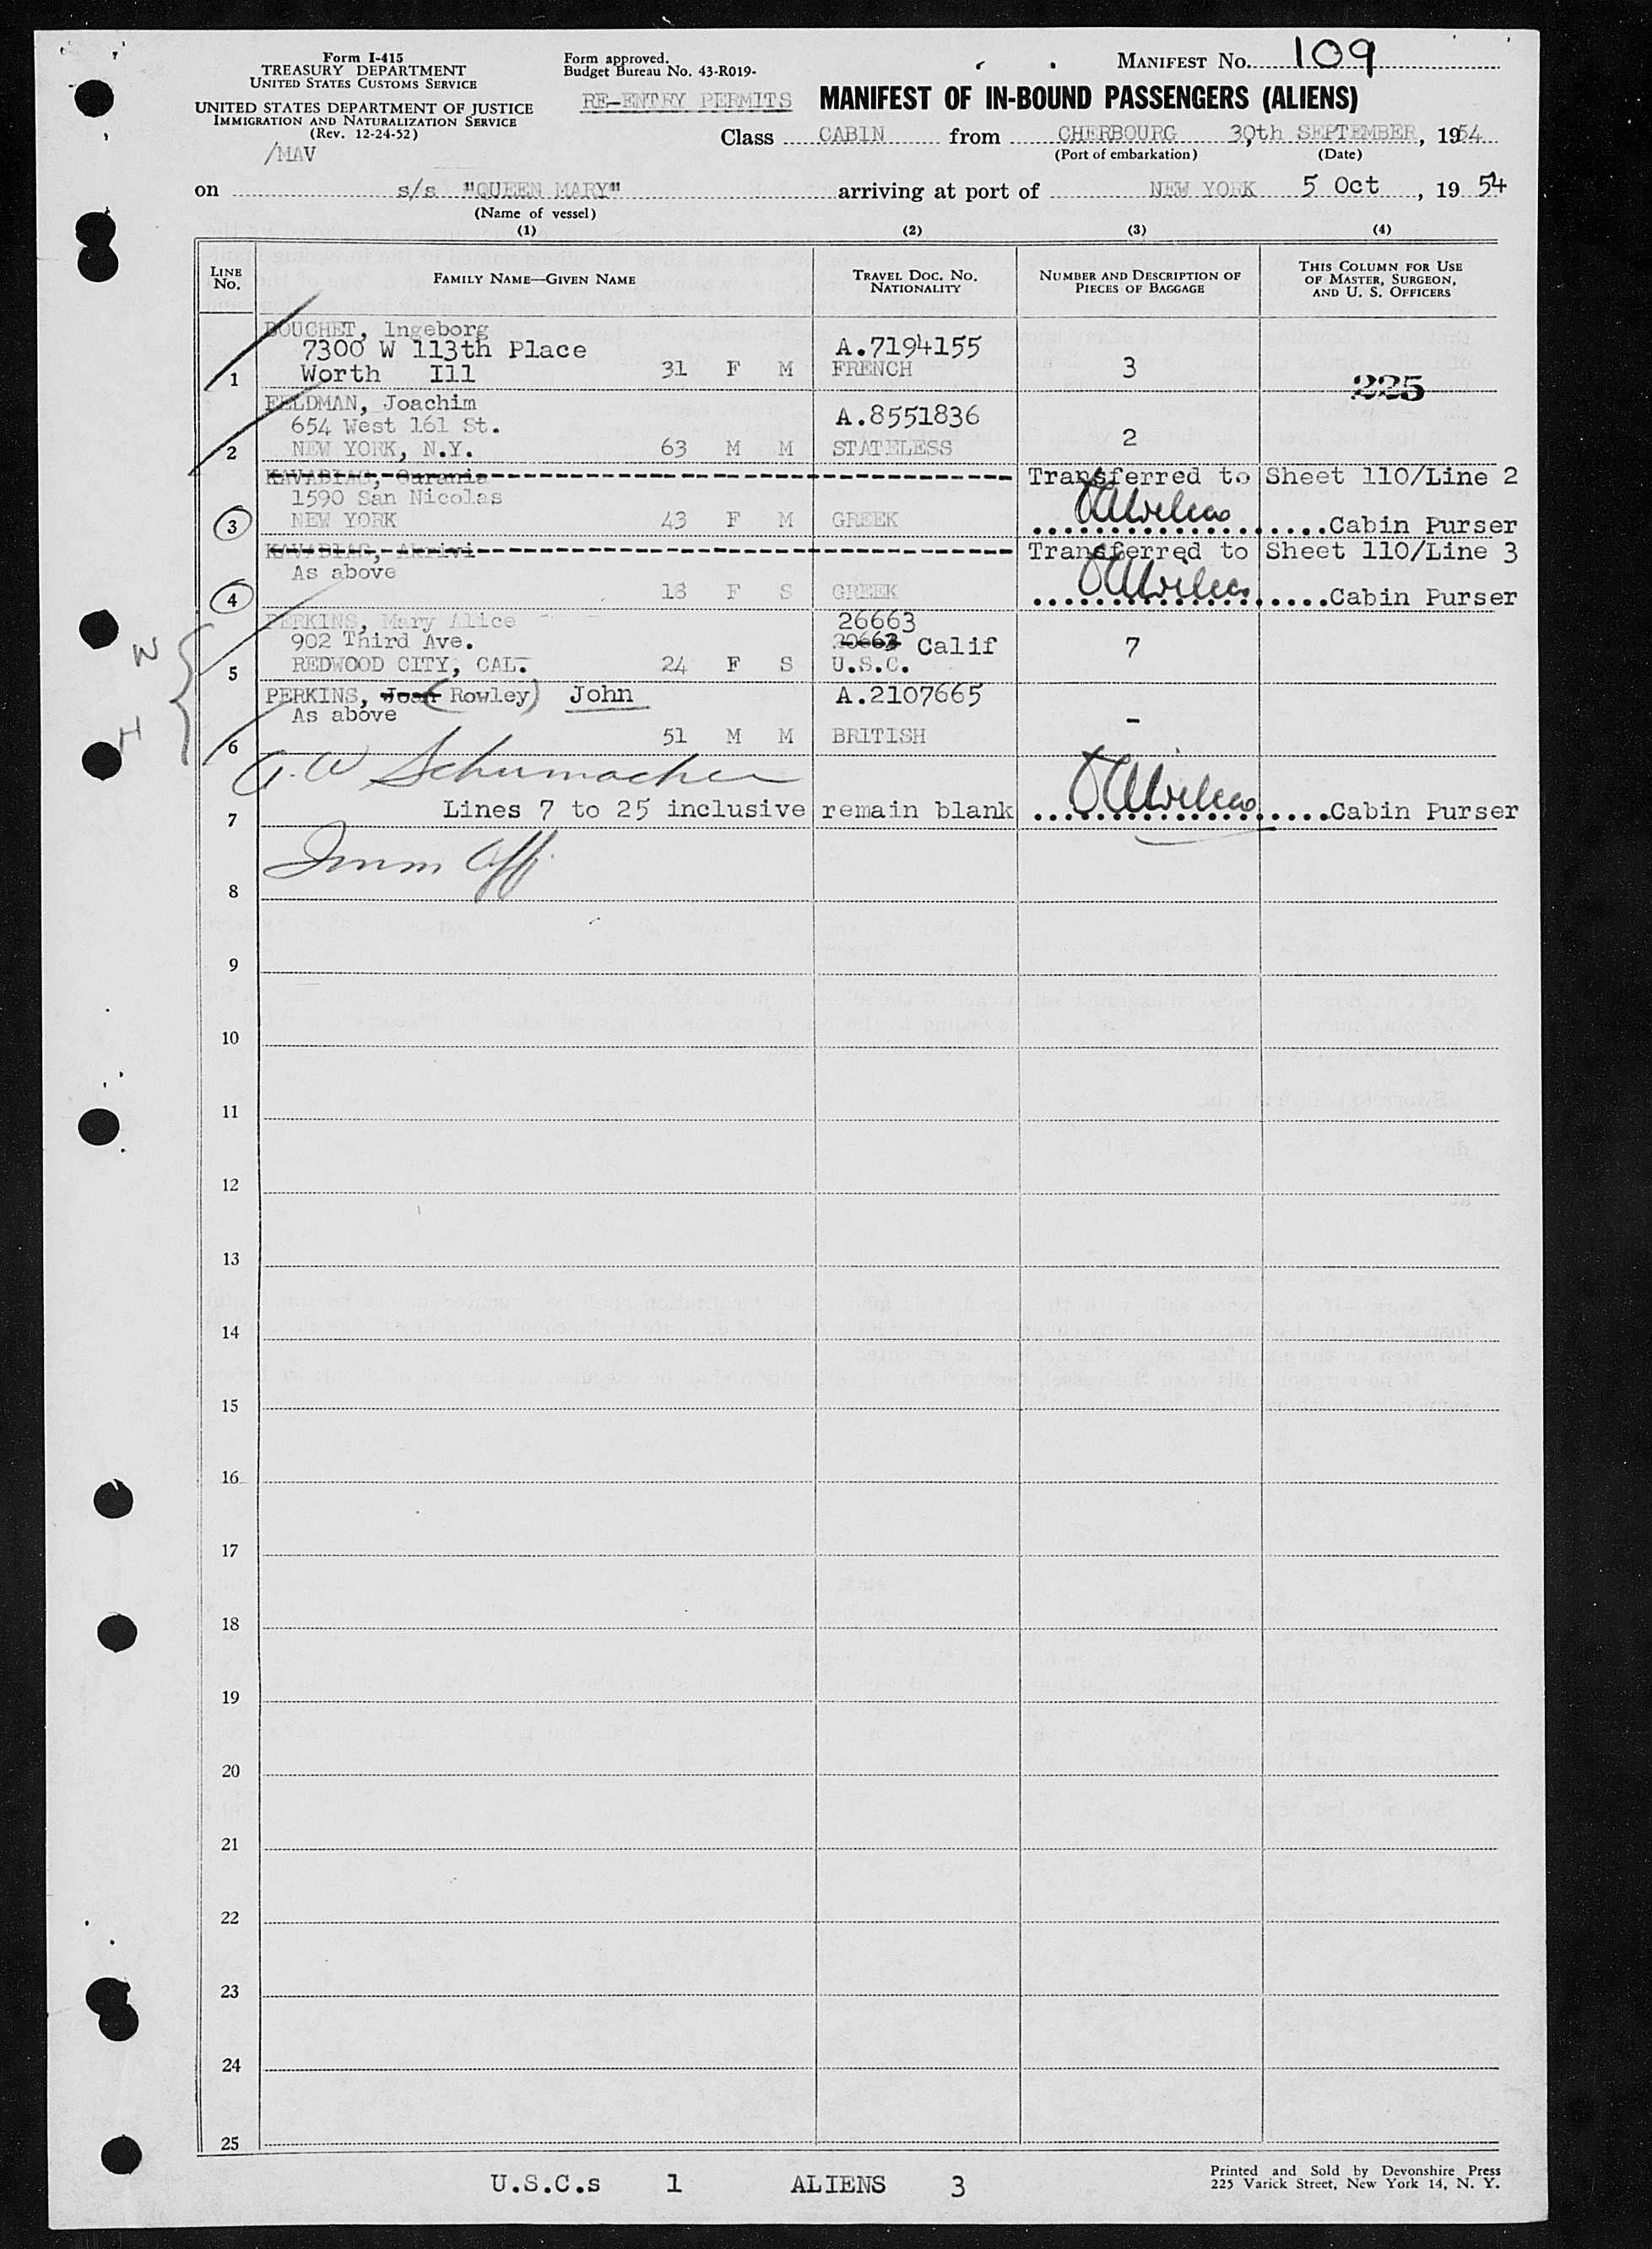 Form I-415
TREASURY DEPARTMENT
UNITED STATES CUSTOMS SERVICE
UNITED STATES DEPARTMENT OF JUSTICE
IMMIGRATION AND NATURALIZATION SERVICE
(Rev. 12-24-52)
/MAV
Form approved.
Budget Bureau No. 43-R019-
RE-ENTRY PERMITS
MANIFEST NO. 109
MANIFEST OF IN-BOUND PASSENGERS (ALIENS)
Class CABIN from CHERBOURG 30th SEPTEMBER, 1954
(Port of embarkation) (Date)
on s/s "QUEEN MARY" arriving at port of NEW YORK 5 Oct, 1954
(Name of vessel)
(1) (2) (3) (4)
LINE NO. FAMILY NAME—GIVEN NAME TRAVEL DOC. NO. NATIONALITY NUMBER AND DESCRIPTION OF PIECES OF BAGGAGE THIS COLUMN FOR USE OF MASTER, SURGEON, AND U. S. OFFICERS
BOUCHET, Ingeborg
7300 W 113th Place A.7194155
1 Worth Ill 31 F M FRENCH 3
225
FELDMAN, Joachim
654 West 161 St. A.8551836
2 NEW YORK, N.Y. 63 M M STATELESS 2
KAVADIAS, Ourania Transferred to Sheet 110/Line 2
1590 San Nicolas
3 NEW YORK 43 F M GREEK Cabin Purser
KAVADIAS, Akrivi Transferred to Sheet 110/Line 3
As above
4 18 F S GREEK Cabin Purser
PERKINS, Mary Alice 26663
902 Third Ave. 20663 Calif 7
5 REDWOOD CITY, CAL. 24 F S U.S.C.
W
H
PERKINS, Joan (Rowley) John A.2107665
As above -
6 51 M M BRITISH
A. W Schumacher
7 Lines 7 to 25 inclusive remain blank Cabin Purser
Imm Off.
8
9
10
11
12
13
14
15
16
17
18
19
20
21
22
23
24
25
U.S.C.s 1 ALIENS 3
Printed and Sold by Devonshire Press
225 Varick Street, New York 14, N. Y.